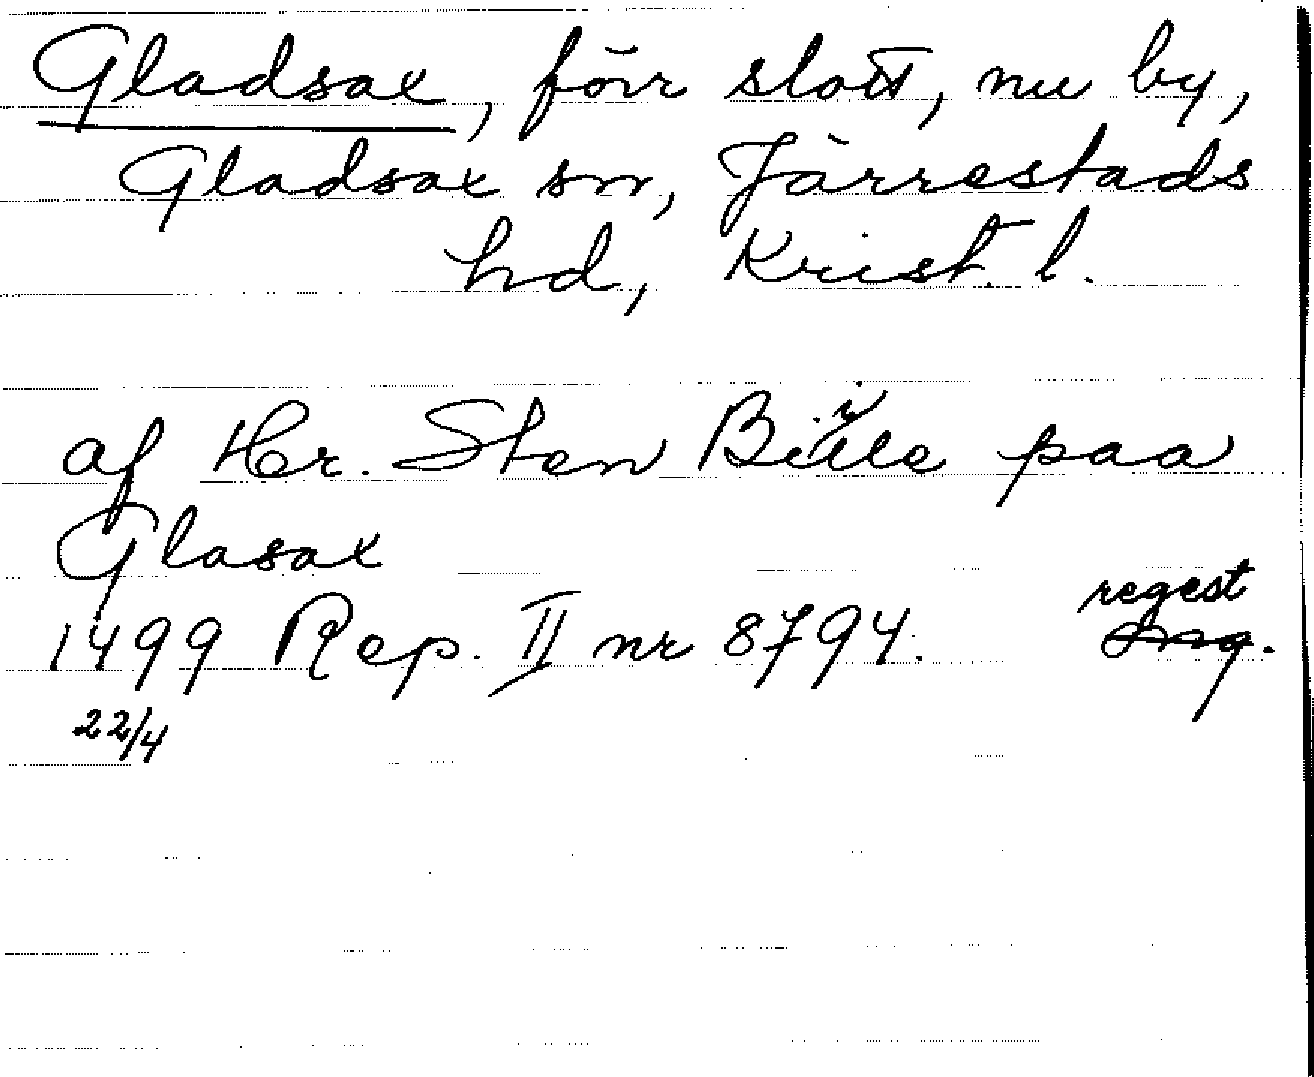 Gladsax, förr slott, nu by,
Gladsax sn, Järrestads
hd, Krist. l.
af Hr. Sten Bille paa
Glasax
regest
1499 Rep. II nr 8794.
22/4